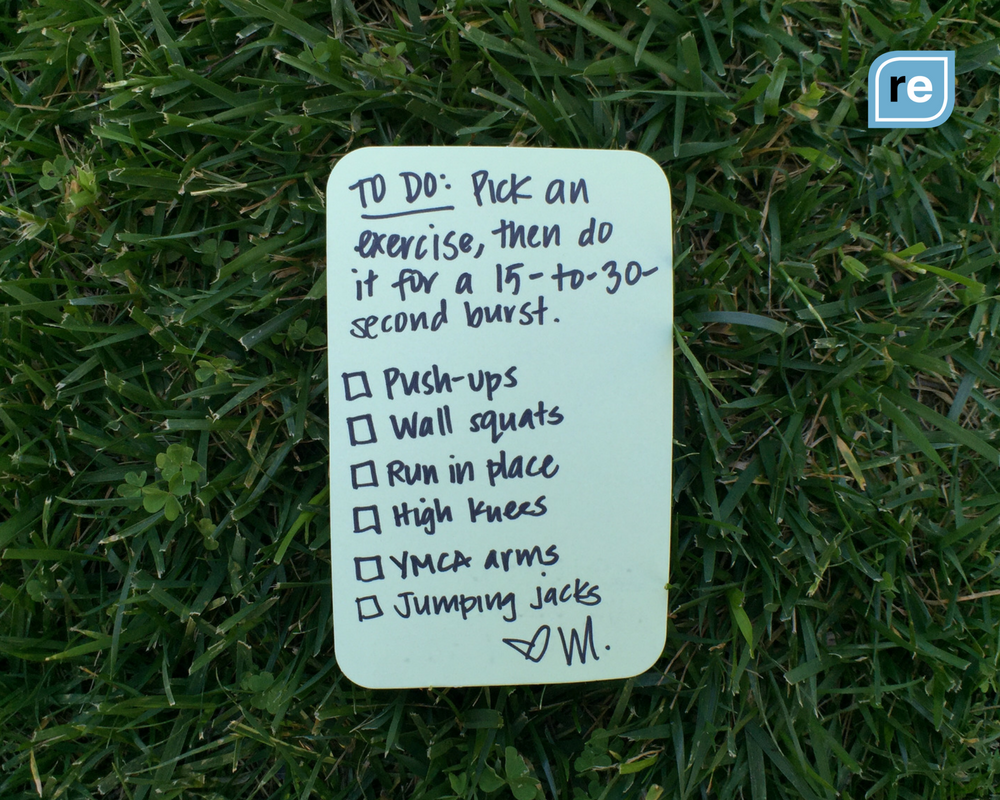 re
TO DO: Pick an
exercise, then do
it for a 15-to-30-
second burst.
Push-ups
Wall squats
Run in place
High knees
YMCA arms
Jumping jacks
♡ M.